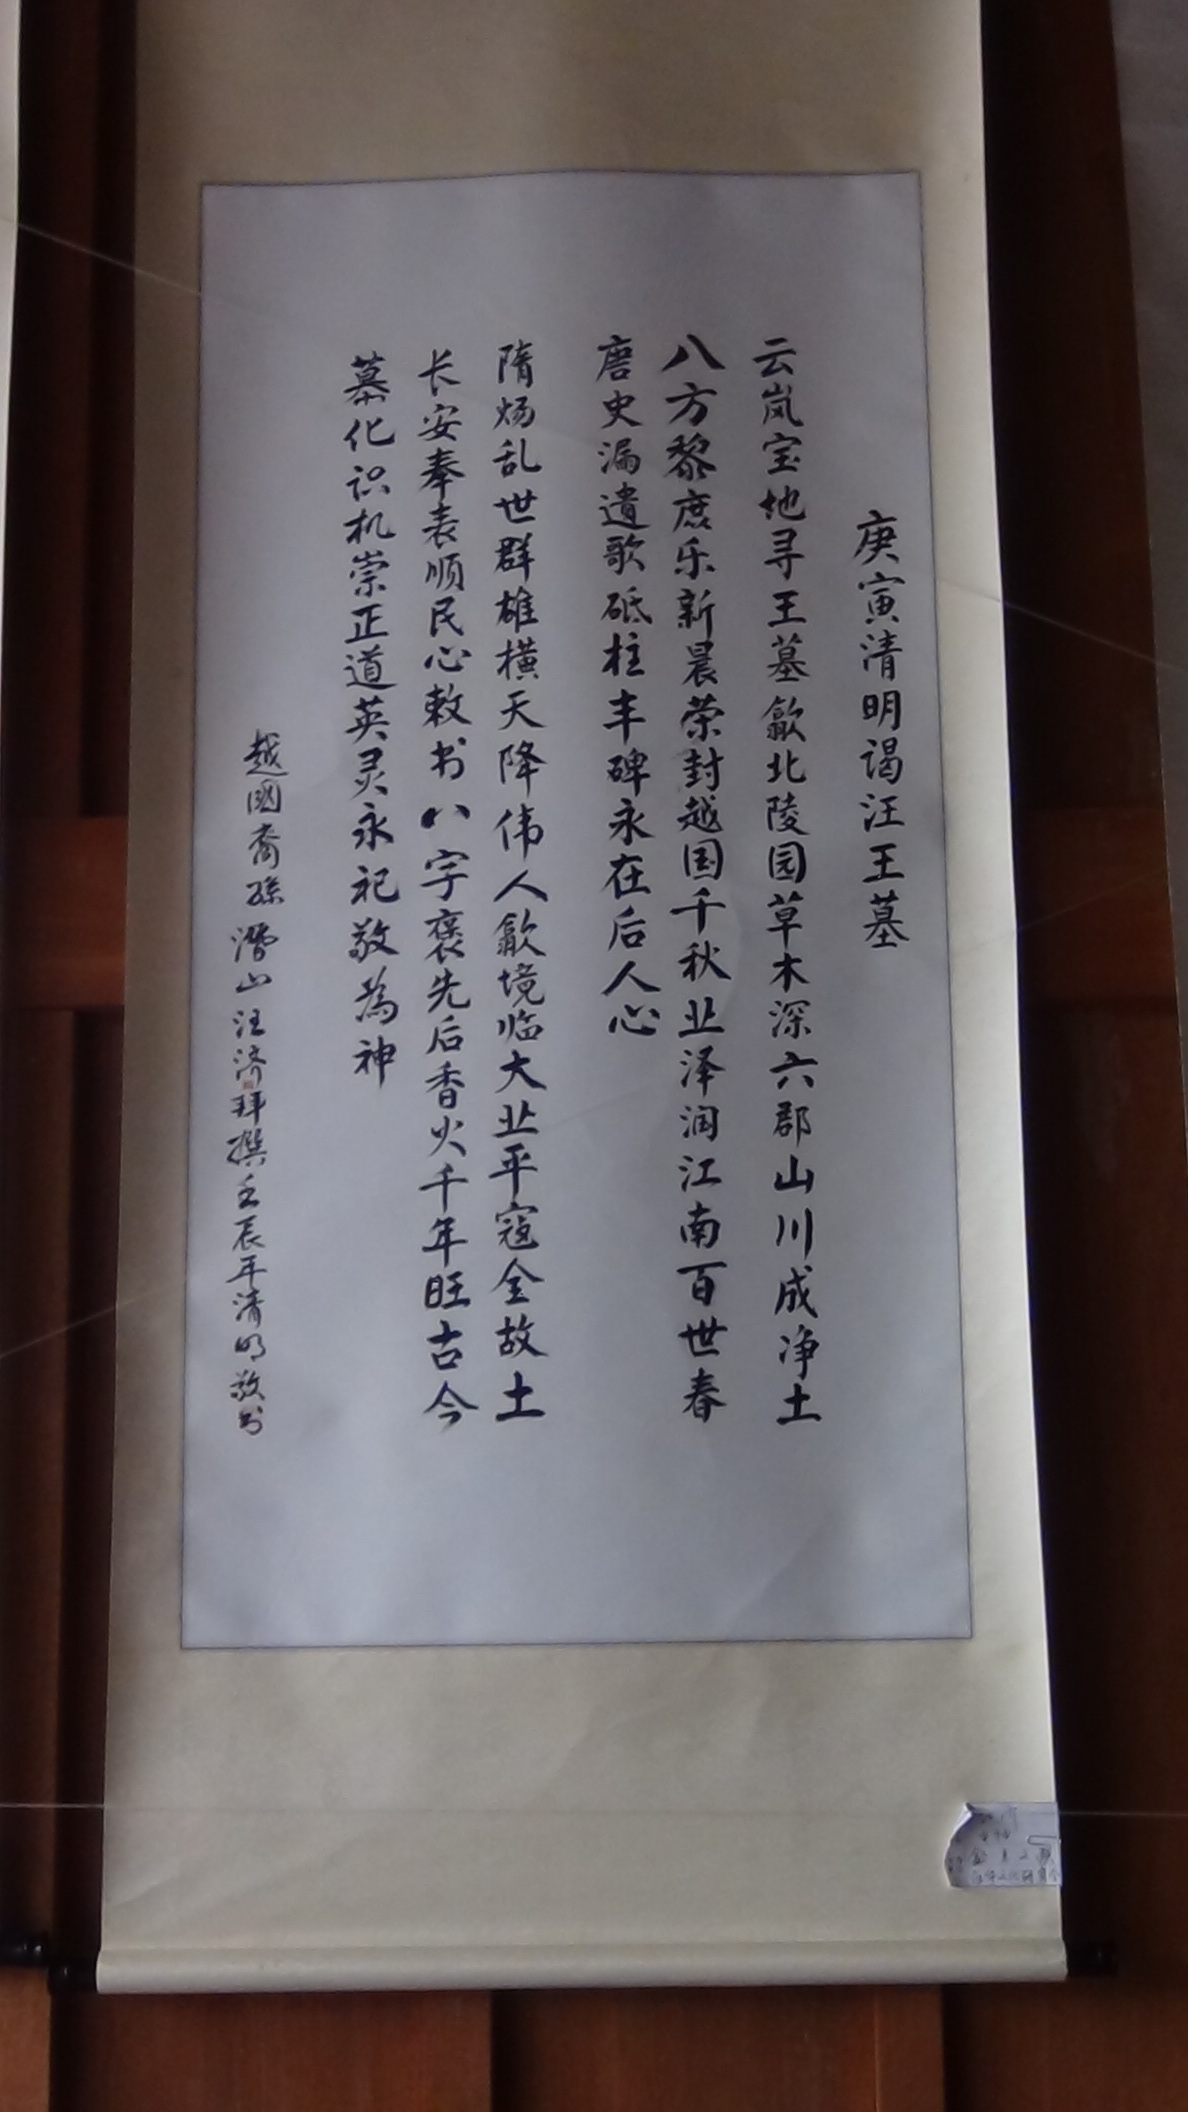 庚寅清明谒汪王墓
云岚宝地寻王墓歙北陵园草木深六郡山川成净土
八方黎庶乐新晨荣封越国千秋业泽润江南百世春
唐史漏遗歌砥柱丰碑永在后人心
隋炀乱世群雄横天降伟人歙境临大业平寇全故土
长安奉表顺民心敕书八字褒先后香火千年旺古今
慕化识机崇正道英灵永祀敬为神
越國裔孫潛山汪济拜撰壬辰年清明敬书